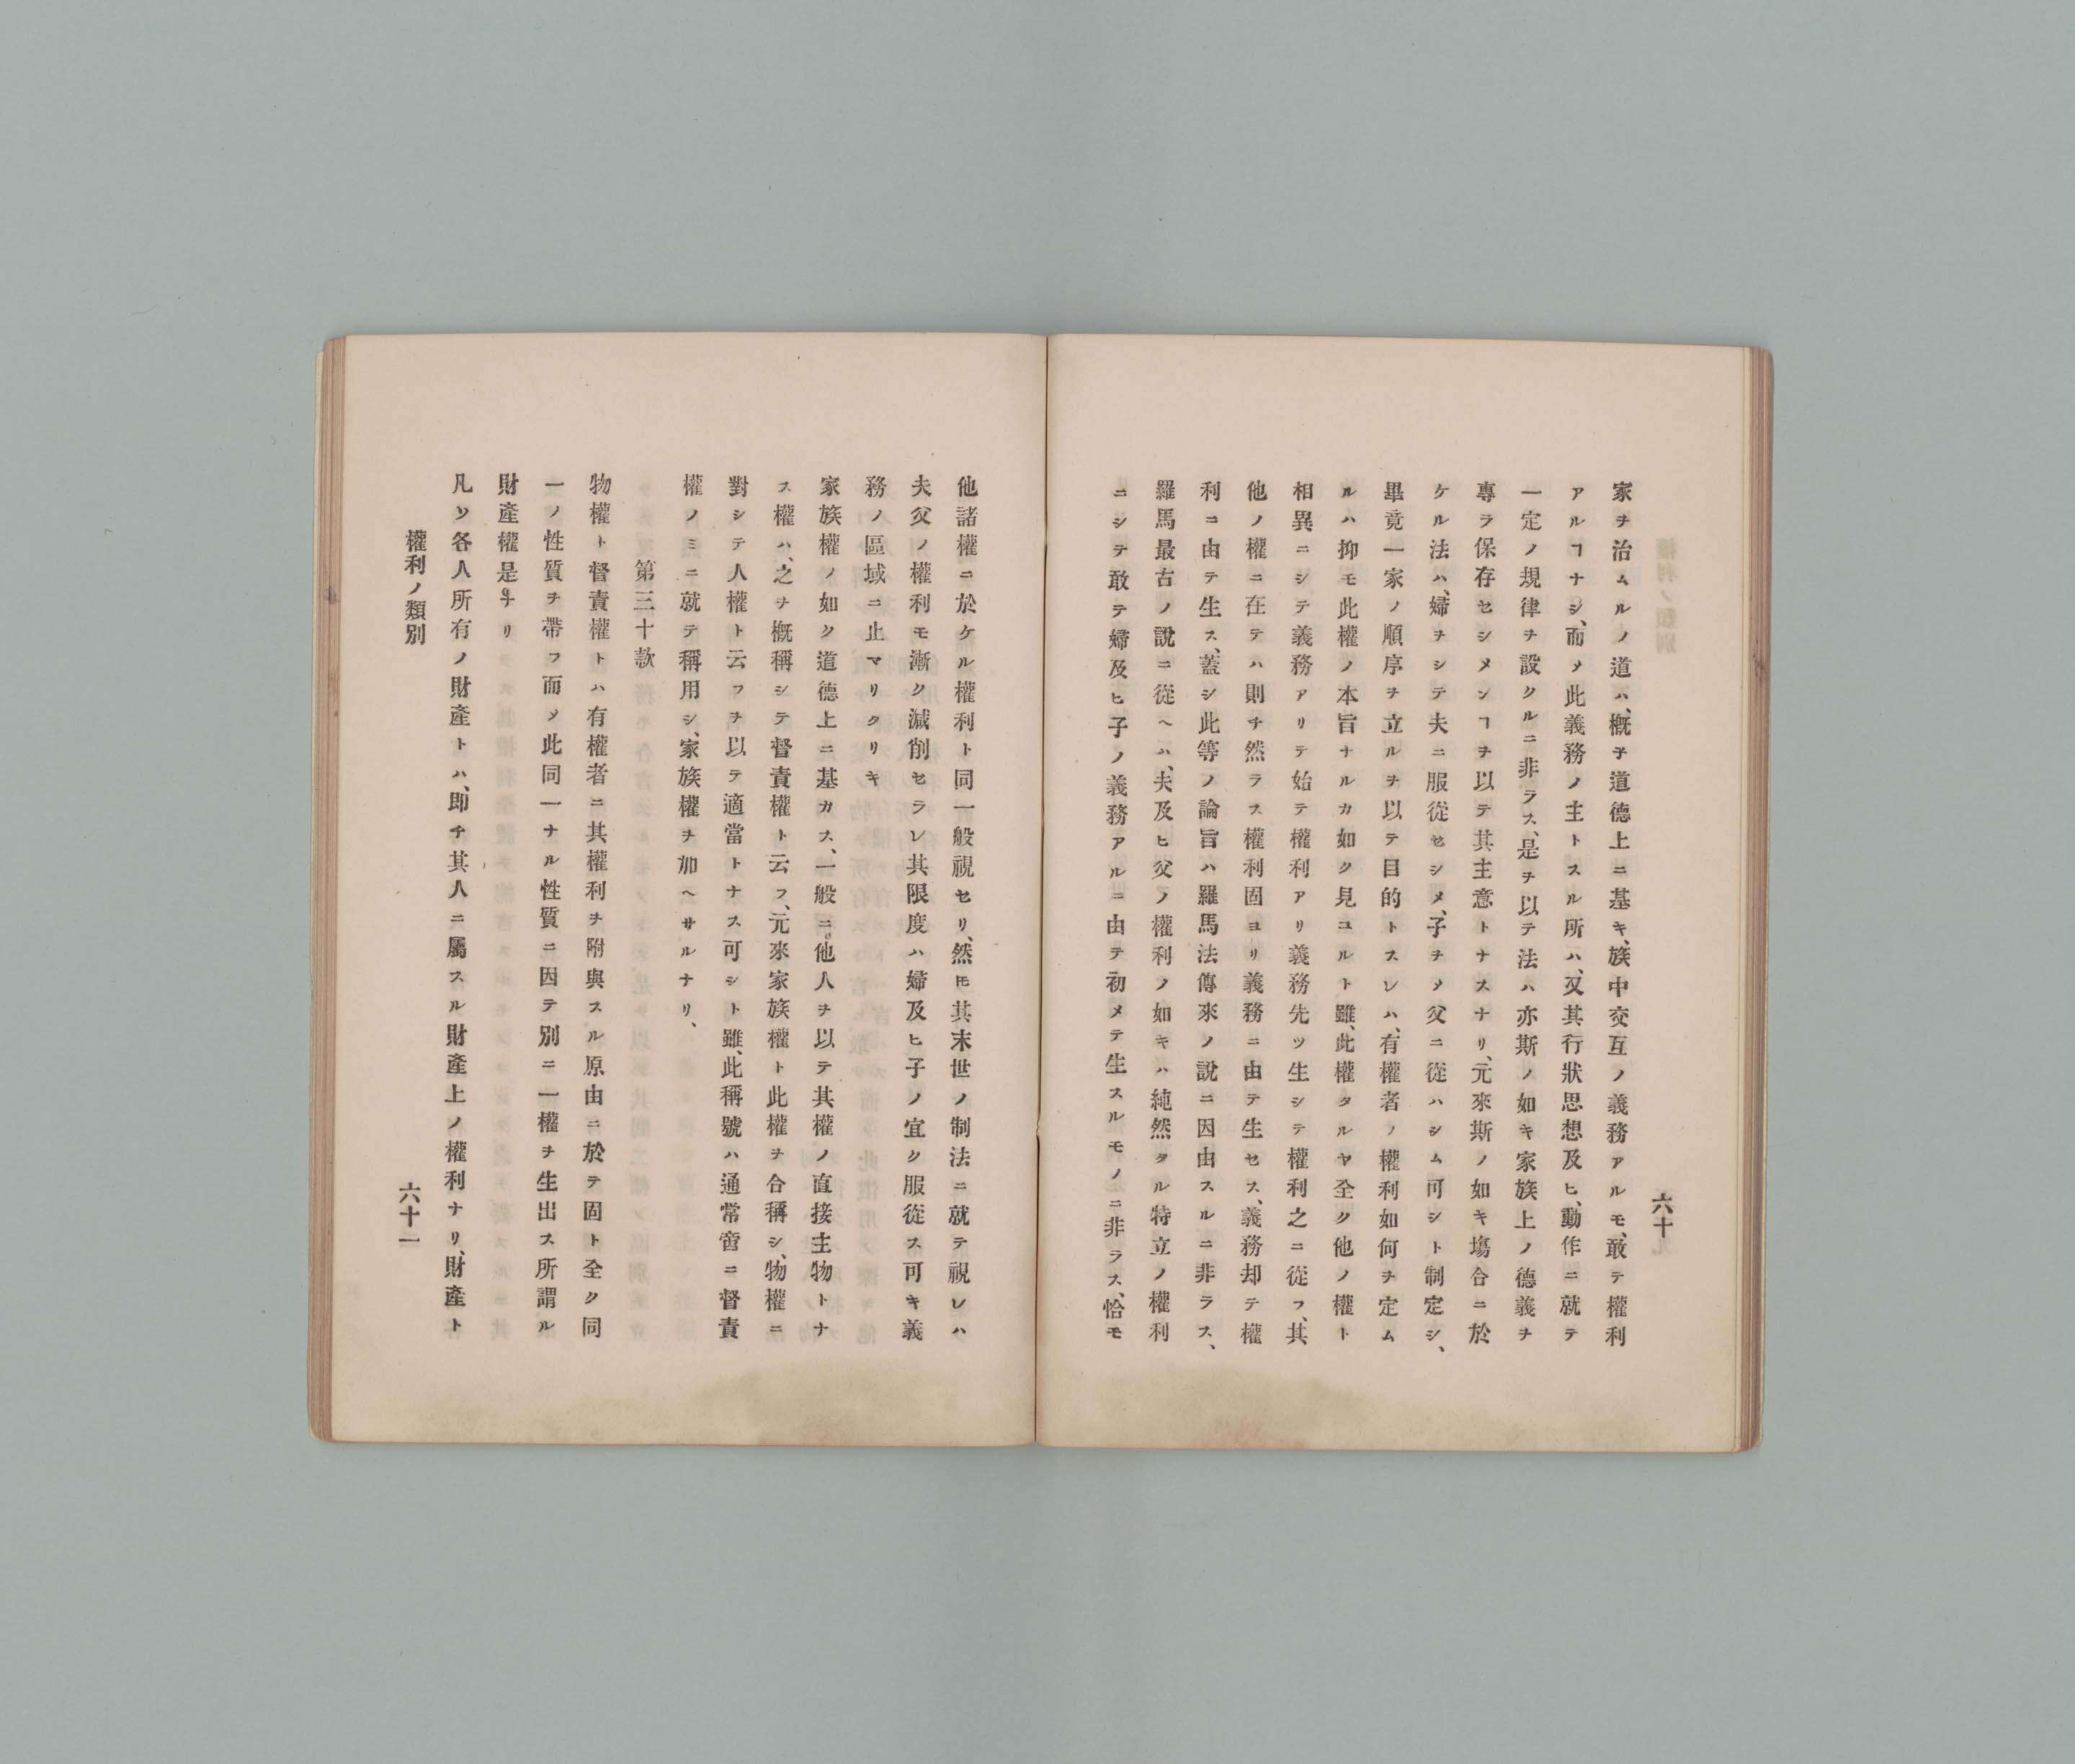 六十
家ヲ治ムルノ道ハ、概子道德上ニ基キ、族中交互ノ義務アルモ、敢テ權利
アルヿナシ、而〆此義務ノ主トスル所ハ、又其行狀思想及ヒ、動作ニ就テ
一定ノ規律ヲ設クルニ非ラス、是ヲ以テ法ハ亦斯ノ如キ家族上ノ德義ヲ
專ラ保存セシメンヿヲ以テ其主意トナスナリ、元來斯ノ如キ塲合ニ於
ケル法ハ、婦ヲシテ夫ニ服從セシメ、子ヲ〆父ニ從ハシム可シト制定シ、
畢竟一家ノ順序ヲ立ルヲ以テ目的トスレハ、有權者ノ權利如何ヲ定ム
ルハ抑モ此權ノ本旨ナルカ如ク見ユルト雖、此權タルヤ全ク他ノ權ト
相異ニシテ義務アリテ始テ權利アリ義務先ツ生シテ權利之ニ從フ、其
他ノ權ニ在テハ則チ然ラス權利固ヨリ義務ニ由テ生セス、義務却テ權
利ニ由テ生ス、蓋シ此等ノ論旨ハ羅馬法傳來ノ說ニ因由スルニ非ラス、
羅馬最古ノ說ニ從ヘハ、夫及ヒ父ノ權利ノ如キハ純然タル特立ノ權利
ニシテ敢テ婦及ヒ子ノ義務アルニ由テ初メテ生スルモノニ非ラス、恰モ
他諸權ニ於ケル權利ト同一般視セリ、然㪽其末世ノ制法ニ就テ視レハ
夫父ノ權利モ漸ク減削セラレ其限度ハ婦及ヒ子ノ宜ク服從ス可キ義
務ノ區域ニ止マリタリキ
家族權ノ如ク道德上ニ基カス、一般ニ他人ヲ以テ其權ノ直接主物トナ
ス權ハ、之ヲ概稱シテ督責權ト云フ、元來家族權ト此權ヲ合稱シ、物權ニ
對シテ人權ト云フヲ以テ適當トナス可シト雖、此稱號ハ通常啻ニ督責
權ノミニ就テ稱用シ、家族權ヲ加ヘサルナリ、
第三十款
物權ト督責權トハ有權者ニ其權利ヲ附與スル原由ニ於テ固ト全ク同
一ノ性質ヲ帶フ而〆此同一ナル性質ニ因テ別ニ一權ヲ生出ス所謂ル
財產權是ナリ
凡ソ各人所有ノ財產トハ、即チ其人ニ屬スル財產上ノ權利ナリ、財產ト
權利ノ類別
六十一